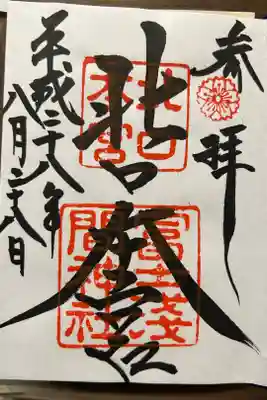 奉拝
北口本宮
北口
本宮
冨士浅
間神社
平成二十八年
八月二十八日